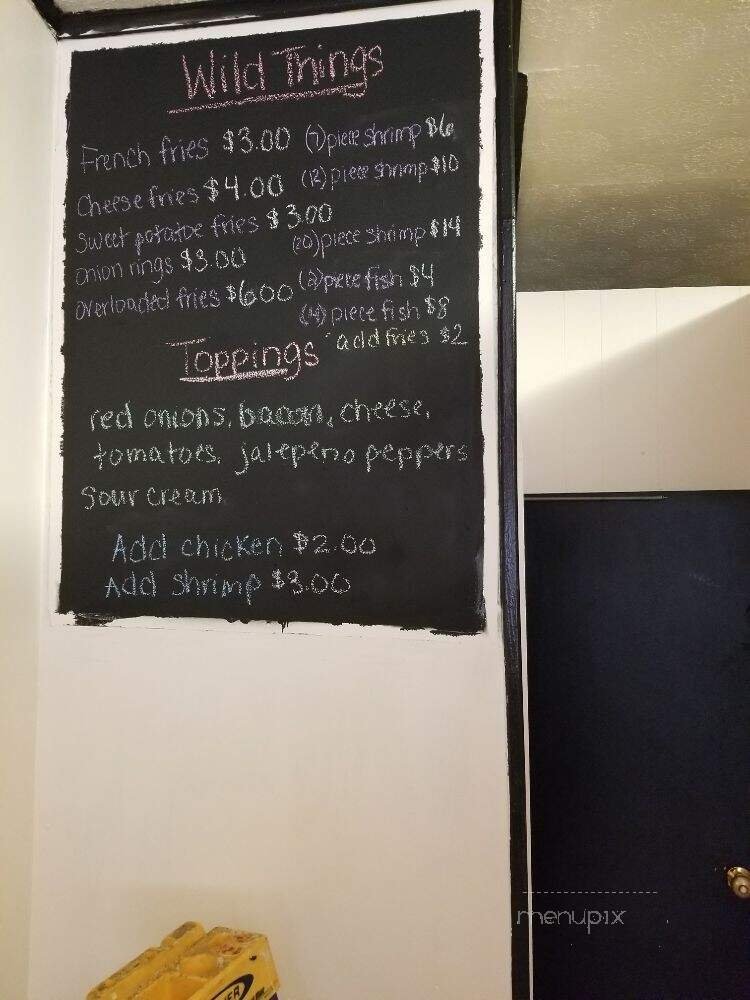 Wild Things
French fries $3.00
Cheese fries $4.00
sweet potatoe fries $3.00
onion rings $3.00
overloaded fries $6.00
(7) piece shrimp $6
(12) piece shrimp $10
(20) piece shrimp $14
(2) piece fish $4
(4) piece fish $8
add fries $2
Toppings
red onions, bacon, cheese,
tomatoes, jalepeno peppers
sour cream
Add chicken $2.00
Add shrimp $3.00
menupix